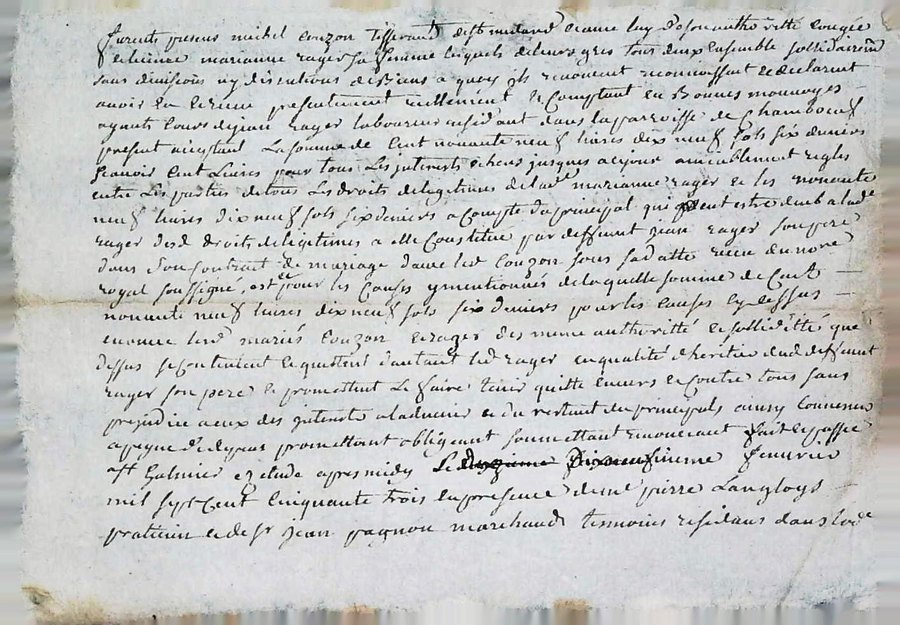 furents presens michel couzon tisserand de st medard et avec luy de son authoritté congée
et licence marianne rager sa femme lesquels de leurs gres tous deux ensemble sollidairem
sans divisions ny discutions de biens a quoy ils renoncent reconnoissent et declarent
avoir eu et receu presentement reellement et comptant en bonnes monnoyes
ayants cours de jean rager laboureur residant dans la parroisse de Chambœuf
present acceptant La somme de Cent nonante neuf livres dix neuf sols six deniers
scavoir cent Livres pour tous Les jnterests echeus jusques a ce jour amiablement regles
entre Les parties de tous Les droits de legitimes de lade marianne rager et les nonante
neuf livres dix neuf sols six deniers a compte du principal qui peut estre deub a lade
rager desd droits de legitimes a elle Constitué par deffunt jean rager son pere
dans son Contract de mariage davec led couzon sous sa datte receu du nore
royal soussigné, et ce pour les Causes y mentionnés de laquelle somme de Cent
nonante neuf livres dix neuf sols six deniers pour les causes cy dessus
enoncé lesd mariés couzon et rager de meme authoritté et sollidditté que
dessus se contentent et quittent d'autant led rager en qualité d'heritier dud deffunt
rager son pere et promettent Le faire tenir quitte envers et contre tous sans
prejudice a eux des jnterests a ladvenir et du restant du principals ainsy convenu
a peyne de depans promettant obligeant soummettant renonceant fait et passé
a st Galmier etude apres midy Le dix neufvieme fevrier
mil sept cent Cinquante trois en presence de me pierre Langloys
praticien et de sr jean pagnon marchand temoins residans dans lade